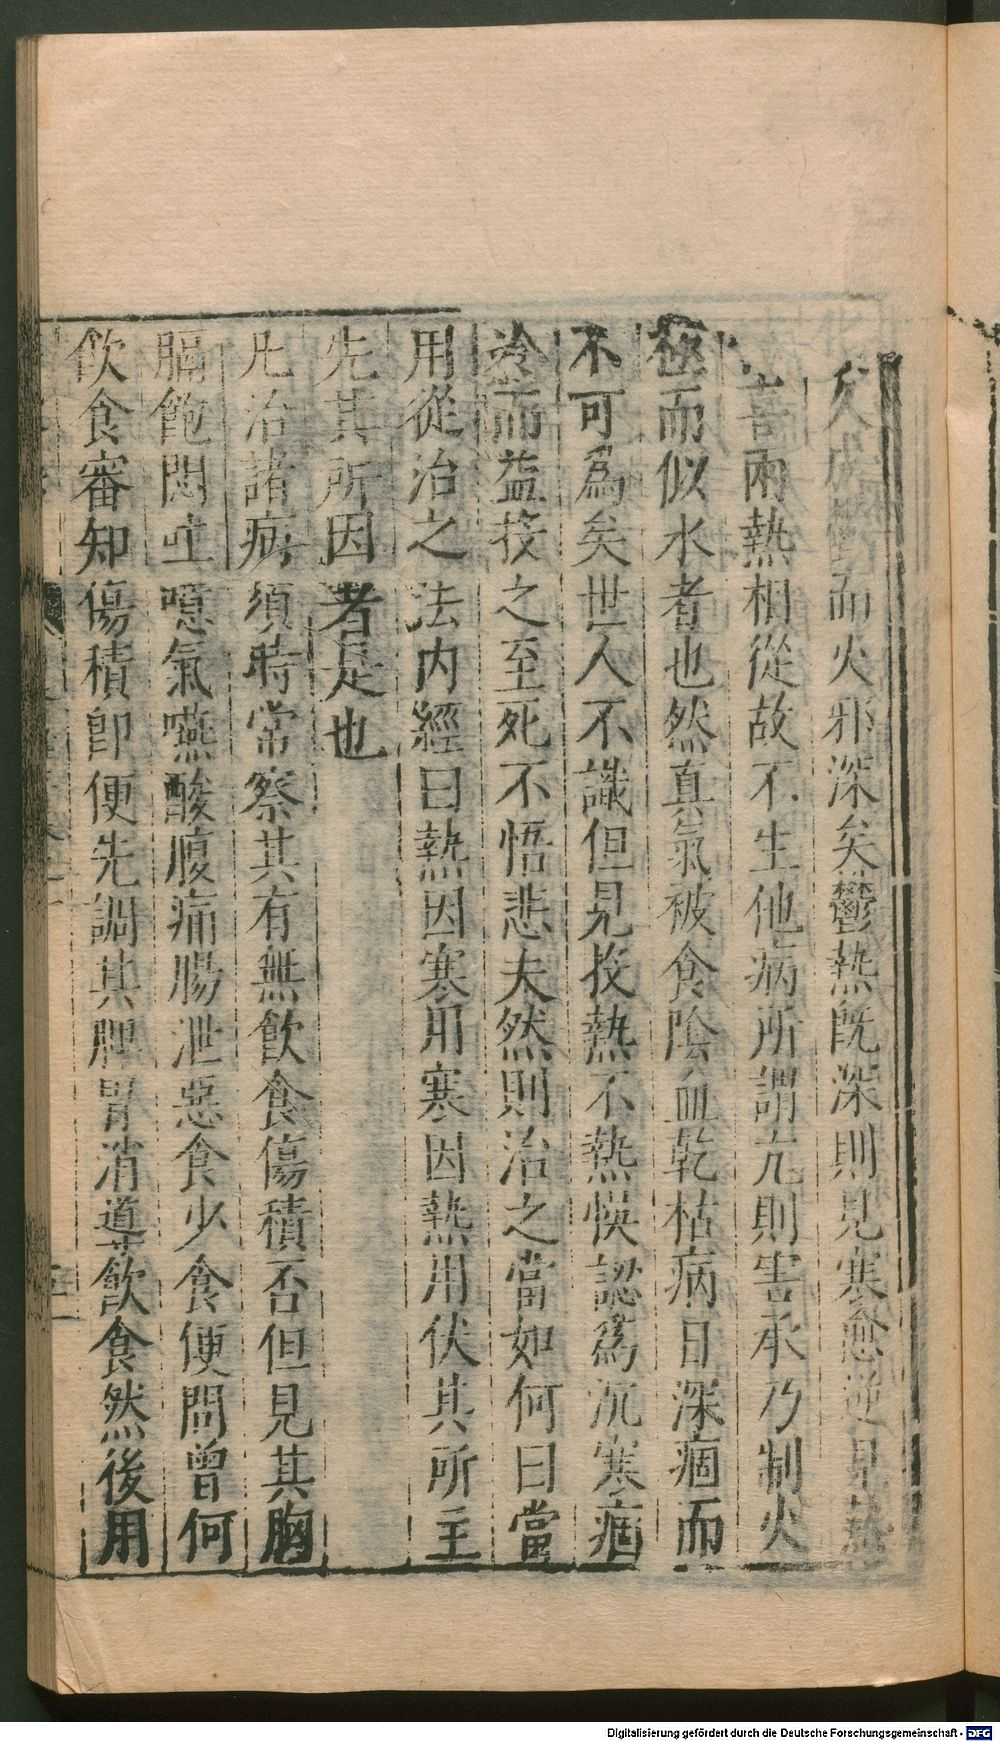 久成鬱而火邪深矣鬱熱既深則見寒愈逆見熱
喜兩熱相從故不生他病所謂亢則害承乃制火
極而似水者也然真氣被食陰血乾枯病日深痼而
不可爲矣世人不識但見投熱不熱悞認爲沉寒痼
冷而益投之至死不悟悲夫然則治之當如何曰當
用從治之法内經曰熱因寒用寒因熱用伏其所主
先其所因者是也
凡治諸病須時常察其有無飲食傷積否但見其胸
膈飽悶吐噫氣嚥酸腹痛腸泄惡食少食便問曾何
飲食審知傷積卽便先調其脾胃消導飲食然後用
Digitalisierung gefördert durch die Deutsche Forschungsgemeinschaft - DFG